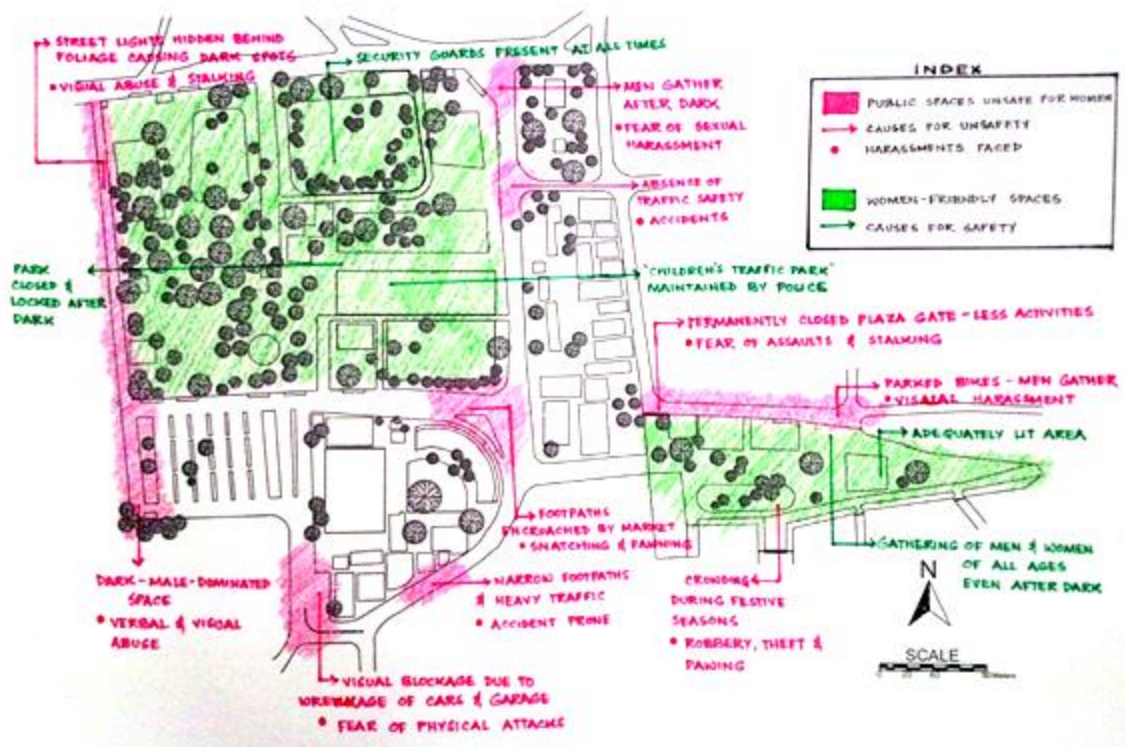 STREET LIGHTS HIDDEN BEHIND
FOLIAGE CAUSING DARK SPOTS
• VISUAL ABUSE & STALKING
SECURITY GUARDS PRESENT AT ALL TIMES
MEN GATHER
AFTER DARK
• FEAR OF SEXUAL
HARASSMENT
ABSENCE OF
TRAFFIC SAFETY
• ACCIDENTS
INDEX
PUBLIC SPACES UNSAFE FOR WOMEN
CAUSES FOR UNSAFETY
HARASSMENTS FACED
WOMEN-FRIENDLY SPACES
CAUSES FOR SAFETY
PARK
CLOSED &
LOCKED AFTER
DARK
"CHILDREN'S TRAFFIC PARK"
MAINTAINED BY POLICE
PERMANENTLY CLOSED PLAZA GATE - LESS ACTIVITIES
• FEAR OF ASSAULTS & STALKING
PARKED BIKES - MEN GATHER
• VISUAL HARASSMENT
ADEQUATELY LIT AREA
FOOTPATHS
ENCROACHED BY MARKET
• SNATCHING & PAWNING
GATHERING OF MEN & WOMEN
OF ALL AGES
EVEN AFTER DARK
DARK-MALE-DOMINATED
SPACE
• VERBAL & VISUAL
ABUSE
NARROW FOOTPATHS
& HEAVY TRAFFIC
• ACCIDENT PRONE
CROWDING
DURING FESTIVE
SEASONS
• ROBBERY, THEFT &
PAWING
VISUAL BLOCKAGE DUE TO
WRECKAGE OF CARS & GARAGE
• FEAR OF PHYSICAL ATTACKS
N
SCALE
0 20 40
Meters